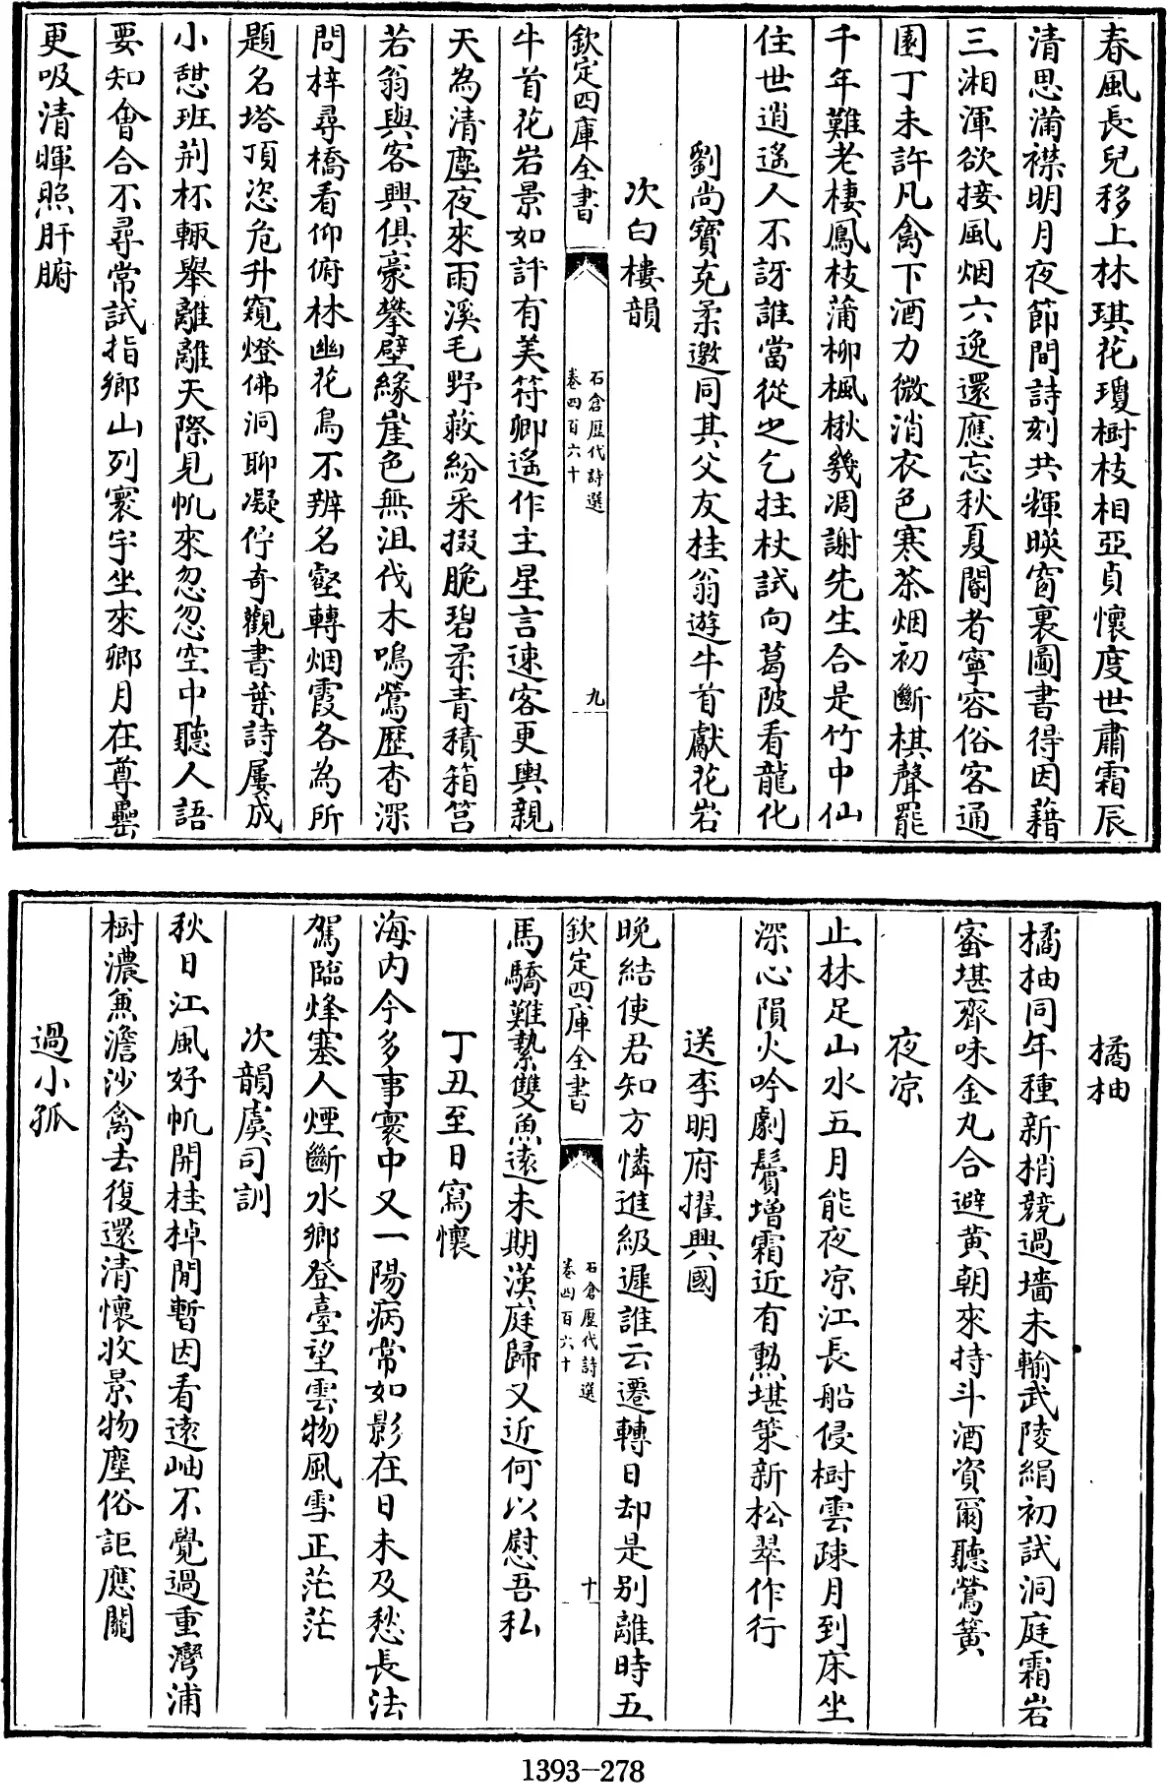 春風長兒移上林琪花瓊樹枝相亞貞懷度世肅霜辰
清思滿襟明月夜節間詩刻共輝暎窗裏圖書得因藉
三湘渾欲接風烟六逸還應忘秋夏閽者寧容俗客通
園丁未許凡禽下酒力微消衣色寒茶烟初斷棋聲罷
千年難老棲鳳枝蒲柳楓楸幾凋謝先生合是竹中仙
住世逍遙人不訝誰當從之乞拄杖試向葛陂看龍化
劉尚寳充柔邀同其父友桂翁遊牛首獻花岩
次白樓韻
欽定四庫全書
石倉歷代詩選
卷四百六十
九
牛首花岩景如許有美符卿遙作主星言速客更輿親
天為清塵夜來雨溪毛野蔌紛采掇脆碧柔青積箱筥
若翁與客興俱豪攀壁緣崖色無沮伐木鳴鶯歷杳深
問梓尋橋看仰俯林幽花鳥不辨名壑轉烟霞各為所
題名塔頂恣危升窺燈佛洞聊凝佇奇觀書葉詩屢成
小憇班荊杯輙舉離離天際見帆來忽忽空中聽人語
要知會合不尋常試指鄉山列寰宇坐來鄉月在尊罍
更吸清暉照肝腑
橘柚
橘柚同年種新梢競過墻未輸武陵絹初試洞庭霜岩
蜜堪齊味金丸合避黄朝來持斗酒資爾聽鶯簧
夜凉
止林足山水五月能夜凉江長船侵樹雲疎月到床坐
深心隕火吟劇鬢增霜近有勲堪策新松翠作行
送李明府擢興國
晚結使君知方憐進級遲誰云遷轉日却是别離時五
欽定四庫全書
石倉歷代詩選
卷四百六十
十
馬驕難縶雙魚逺未期漢庭歸又近何以慰吾私
丁丑至日寫懷
海内今多事寰中又一陽病常如影在日未及愁長法
駕臨烽塞人煙斷水鄉登臺望雲物風雪正茫茫
次韻虞司訓
秋日江風好帆開桂棹閒暫因看逺岫不覺過重灣浦
樹濃兼澹沙禽去復還清懷收景物塵俗詎應關
過小孤
1393—278